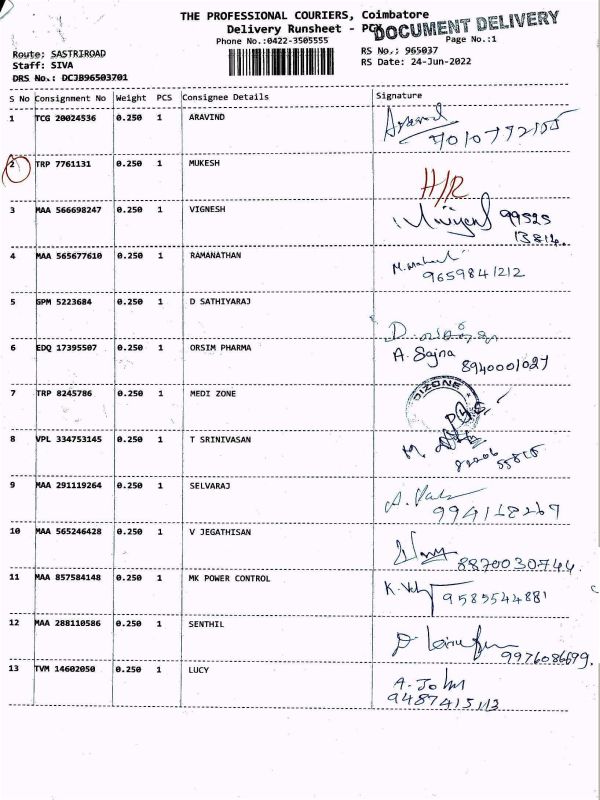 THE PROFESSIONAL COURIERS, Coimbatore
Delivery Runsheet - PCX
DOCUMENT DELIVERY
Phone No.:0422-3505555
Page No.:1
Route: SASTRIROAD
RS No.; 965037
Staff: SIVA
RS Date: 24-Jun-2022
DRS No.: DCJB96503701
S No Consignment No Weight PCS Consignee Details Signature
1 TCG 20024536 0.250 1 ARAVIND Aravind
7010772155
2 TRP 7761131 0.250 1 MUKESH
H/R
3 MAA 566698247 0.250 1 VIGNESH 99525
13814.
4 MAA 565677610 0.250 1 RAMANATHAN
9659841212
5 GPM 5223684 0.250 1 D SATHIYARAJ
D.
6 EDQ 17395507 0.250 1 ORSIM PHARMA A. Sajna
8940001027
7 TRP 8245786 0.250 1 MEDI ZONE DIZONE
8 VPL 334753145 0.250 1 T SRINIVASAN M
9 MAA 291119264 0.250 1 SELVARAJ
994118267
10 MAA 565246428 0.250 1 V JEGATHISAN
8870030744.
11 MAA 857584148 0.250 1 MK POWER CONTROL K.
9585544881
12 MAA 288110586 0.250 1 SENTHIL
9976086699.
13 TVM 14602050 0.250 1 LUCY A. John
9487415113